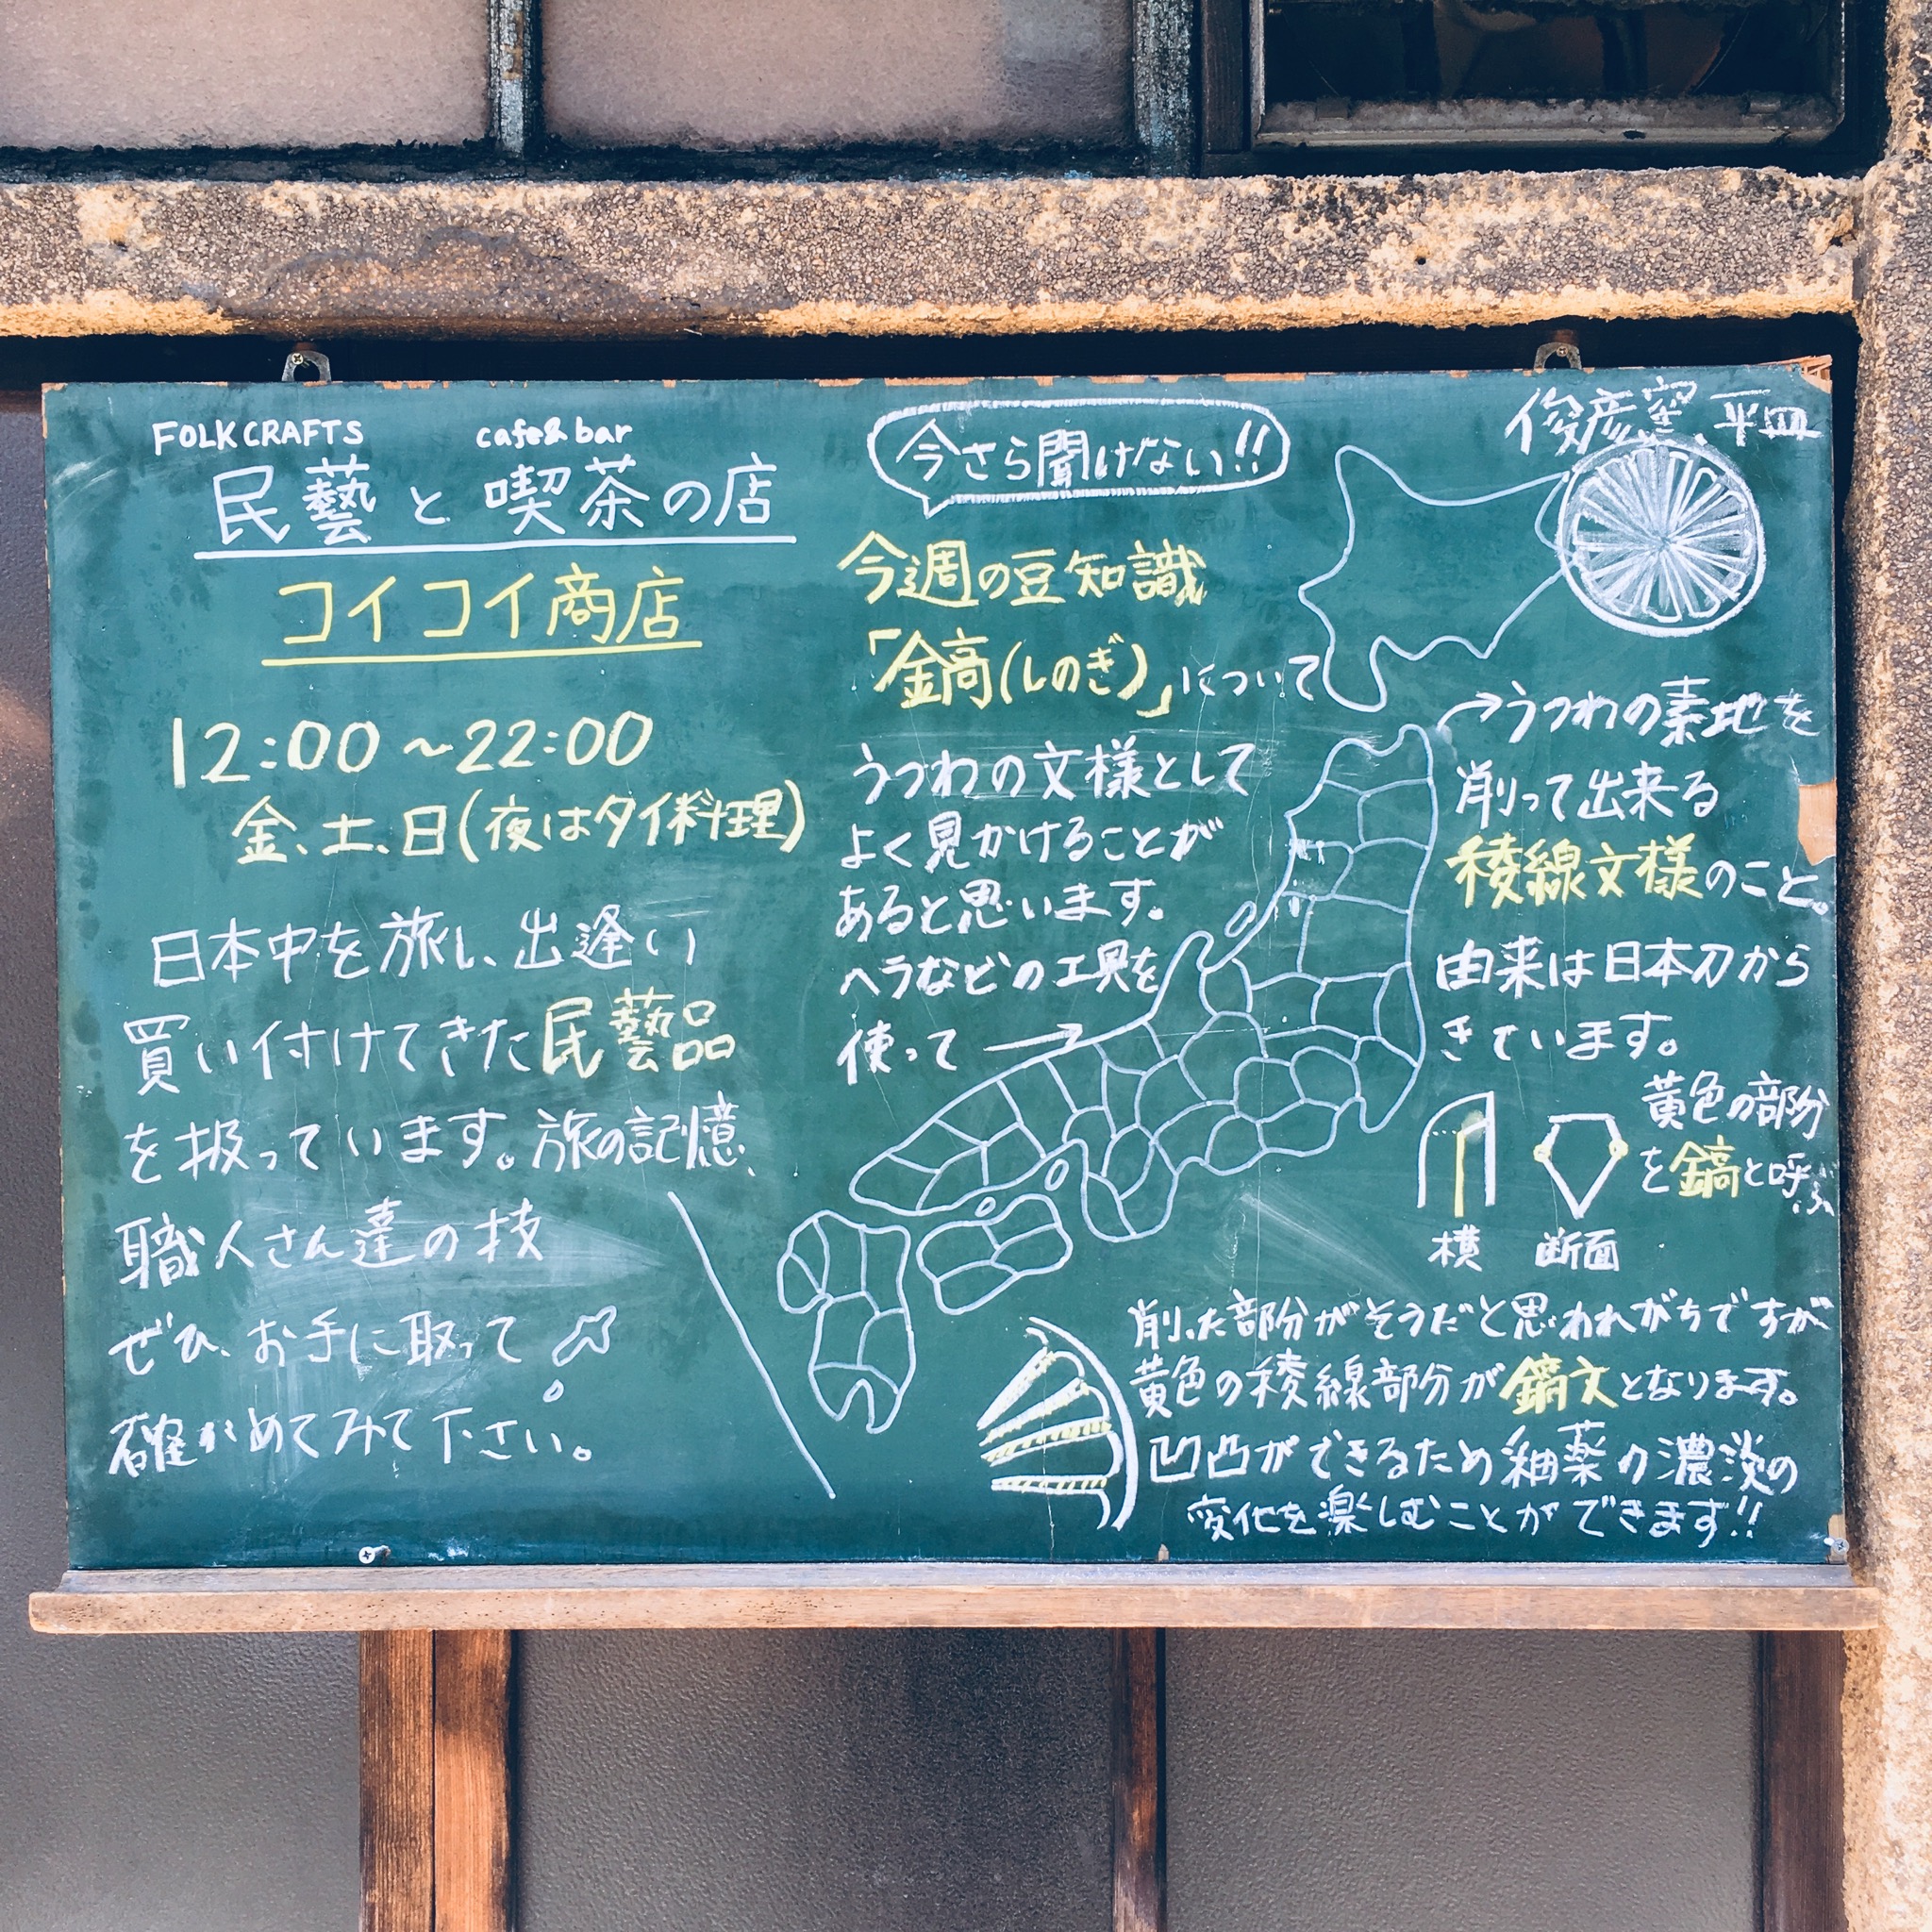 FOLKCRAFTS cafe&bar
民藝と喫茶の店
コイコイ商店
12:00~22:00
金、土、日(夜はタイ料理)
日本中を旅し、出逢い
買い付けてきた民藝品
を扱っています。旅の記憶、
職人さん達の技
ぜひ、お手に取って
確かめてみて下さい。
今さら聞けない!!
今週の豆知識
「鎬(しのぎ)」について
うつわの文様として
よく見かけることが
あると思います。
ヘラなどの工具を
使って→
俊彦窯 平皿
→うつわの素地を
削って出来る
稜線文様のこと。
由来は日本刀から
きています。
黄色の部分
を鎬と呼ぶ
横 断面
削った部分がそうだと思われがちですが
黄色の稜線部分が鎬文となります。
凹凸ができるため釉薬の濃淡の
変化を楽しむことができます!!